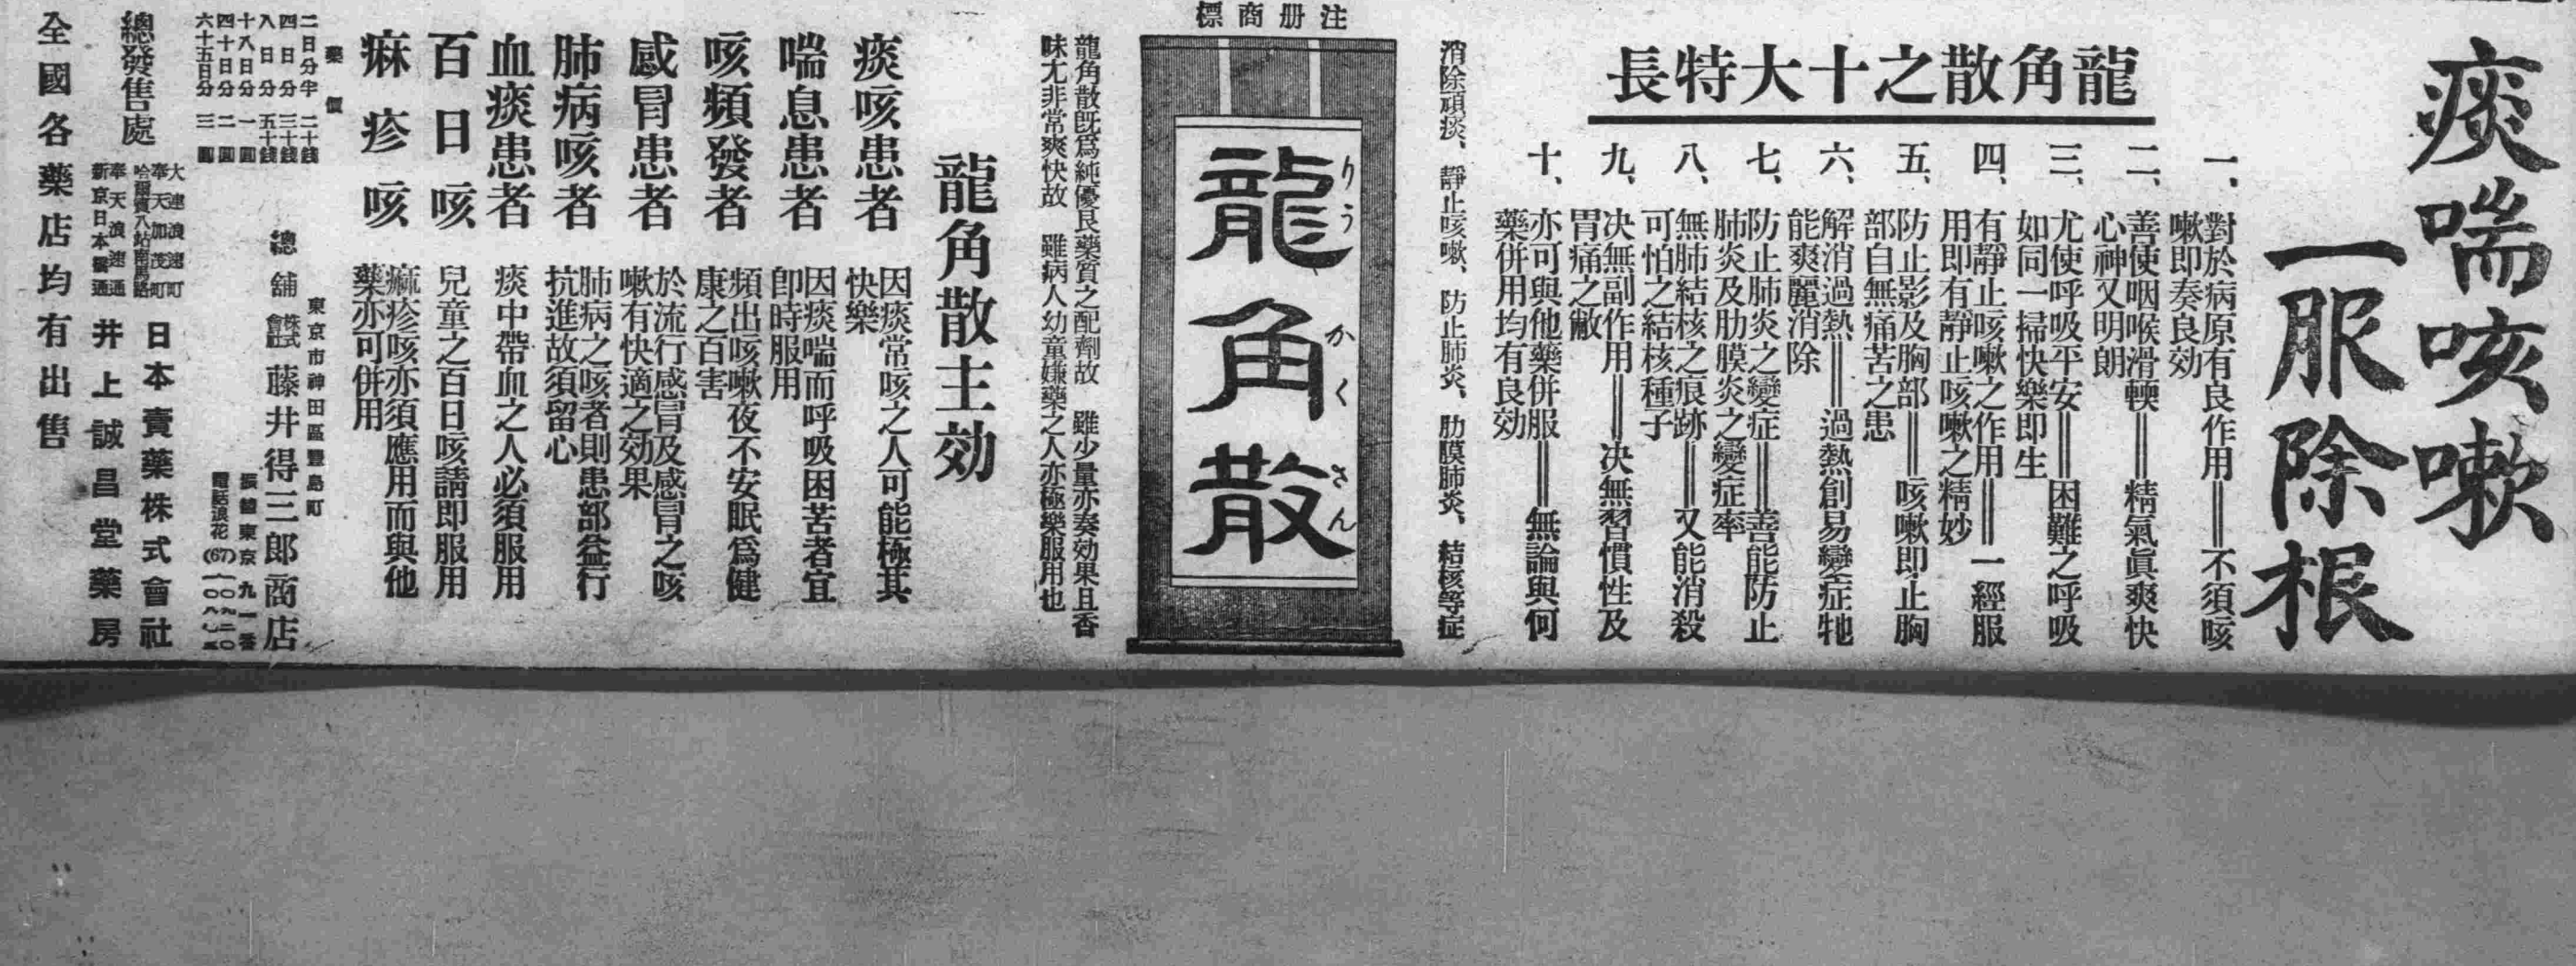 痰喘咳嗽
一服除根
龍角散之十大特長
一、對於病原有良作用＝不須咳
嗽即奏良効
二、善使咽喉滑輭＝精氣眞爽快
心神又明朗
三、尤使呼吸平安＝困難之呼吸
如同一掃快樂即生
四、有靜止咳嗽之作用＝一經服
用即有靜止咳嗽之精妙
五、防止影及胸部＝咳嗽即止胸
部自無痛苦之患
六、解消過熱＝過熱創易變症牠
能爽麗消除
七、防止肺炎之變症＝善能防止
肺炎及肋膜炎之變症率
八、無肺結核之痕跡＝又能消殺
可怕之結核種子
九、决無副作用＝决無習慣性及
胃痛之敝
十、亦可與他藥併服＝無論與何
藥併用均有良効
消除頑痰、靜止咳嗽、防止肺炎、肋膜肺炎、結核等症
注册商標
龍角散
りうかくさん
龍角散既爲純優良藥質之配劑故　雖少量亦奏効果且香
味尤非常爽快故　雖病人幼童嫌藥之人亦極樂服用也
龍角散主効
痰咳患者　因痰常咳之人可能極其
快樂
喘息患者　因痰喘而呼吸困苦者宜
卽時服用
咳頻發者　頻出咳嗽夜不安眠爲健
康之百害
感冒患者　於流行感冒及感冒之咳
嗽有快適之効果
肺病咳者　肺病之咳者則患部益行
抗進故須留心
血痰患者　痰中帶血之人必須服用
百日咳　兒童之百日咳請即服用
痳疹咳　痲疹咳亦須應用而與他
藥亦可併用
藥價
二日分半　二十錢
四日分　三十錢
八日分　五十錢
十八日分　一圓
四十日分　二圓
六十五日分　三圓
東京市神田區豐島町
總舖　株式會社　藤井得三郎商店
振替東京　九一番
電話浪花(67)
總發售處
大連浪速町
奉天加茂町
日本賣藥株式會社
哈爾賓八站南馬路
奉天浪速通
新京日本橋通
井上誠昌堂藥房
全國各藥店均有出售